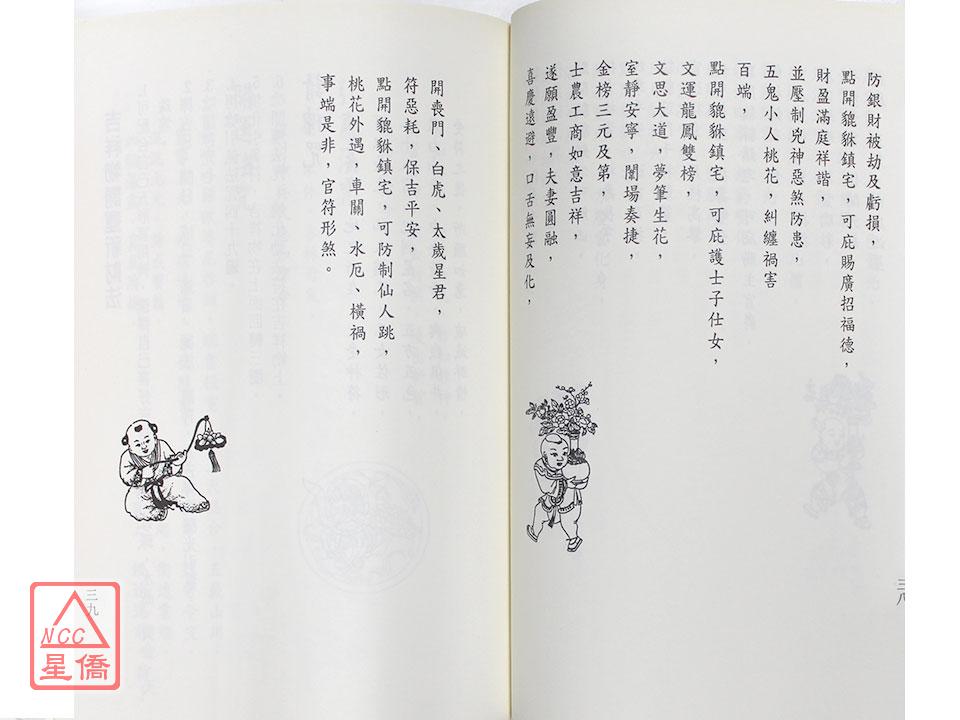 防銀財被劫及虧損，
點開貔貅鎮宅，可庇賜廣招福德，
財盈滿庭祥諧，
並壓制兇神惡煞防患，
五鬼小人桃花，糾纏禍害
百端，
點開貔貅鎮宅，可庇護士子仕女，
文運龍鳳雙榜，
文思大道，夢筆生花，
室靜安寧，闈場奏捷，
金榜三元及第，
士農工商如意吉祥，
遂願盈豐，夫妻圓融，
喜慶遠避，口舌無妄及化，
三八
開喪門、白虎、太歲星君，
符惡耗，保吉平安，
點開貔貅鎮宅，可防制仙人跳，
桃花外遇，車關、水厄、橫禍，
事端是非，官符形煞。
三九
NCC
星僑